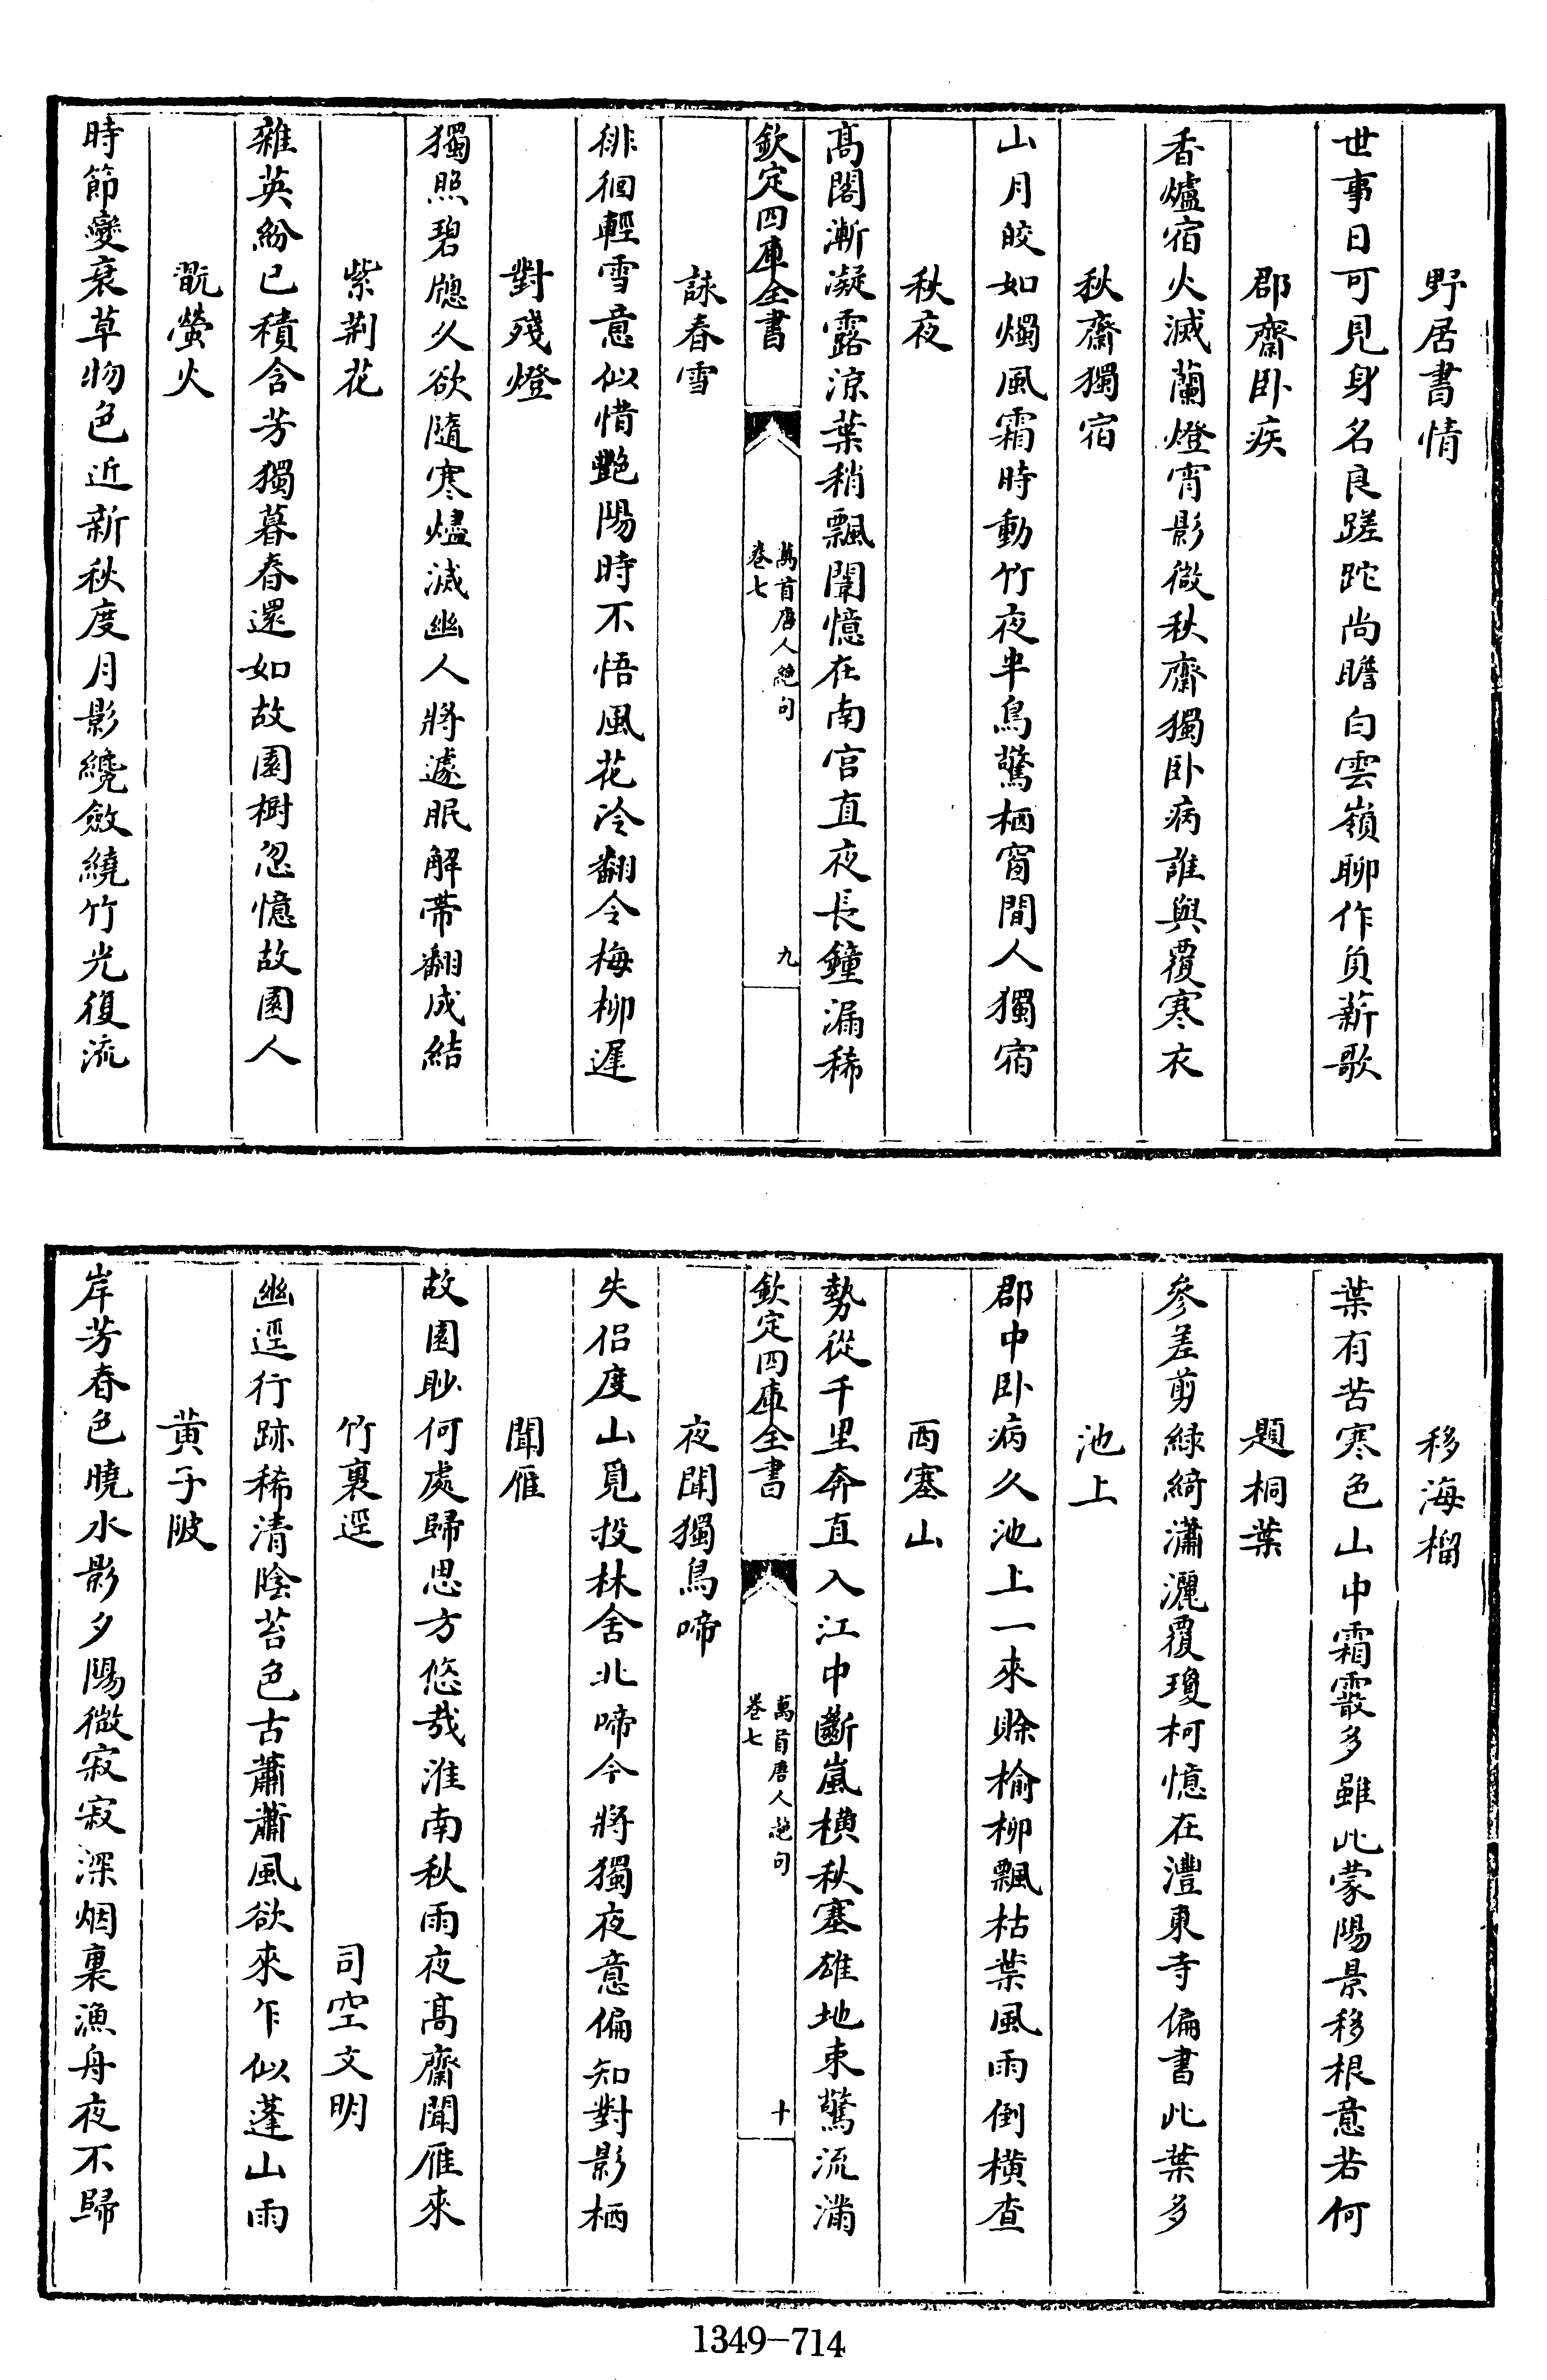 野居書情
世事日可見身名良蹉跎尚瞻白雲嶺聊作負薪歌
郡齋卧疾
香爐宿火滅蘭燈宵影微秋齋獨卧病誰與覆寒衣
秋齋獨宿
山月皎如燭風霜時動竹夜半鳥驚栖窗間人獨宿
秋夜
高閣漸凝露涼葉稍飄闈憶在南宫直夜長鐘漏稀
欽定四庫全書
萬首唐人絶句
卷七
九
詠春雪
徘徊輕雪意似惜艷陽時不悟風花冷翻令梅柳遲
對殘燈
獨照碧牕久欲隨寒燼滅幽人將遽眠解帶翻成結
紫荆花
雜英紛已積含芳獨暮春還如故園樹忽憶故園人
翫螢火
時節變衰草物色近新秋度月影纔斂繞竹光復流
移海榴
葉有苦寒色山中霜霰多雖此蒙陽景移根意若何
題桐葉
參差剪綠綺瀟灑覆瓊柯憶在灃東寺偏書此葉多
池上
郡中卧病久池上一來賒榆柳飄枯葉風雨倒橫查
西塞山
勢從千里奔直入江中斷嵐橫秋塞雄地束驚流滿
欽定四庫全書
萬首唐人絶句
卷七
十
夜聞獨鳥啼
失侶度山覓投林舍北啼今將獨夜意偏知對影栖
聞雁
故園眇何處歸思方悠哉淮南秋雨夜高齋聞雁來
竹裏逕 司空文明
幽逕行跡稀清陰苔色古蕭蕭風欲來乍似蓬山雨
黄子陂
岸芳春色曉水影夕陽微寂寂深烟裏漁舟夜不歸
1349-714